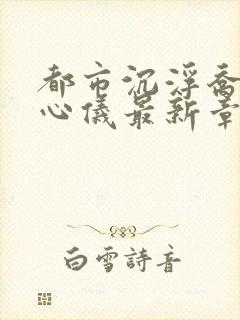 都市沉浮喬
心儀最新章
白雪詩音